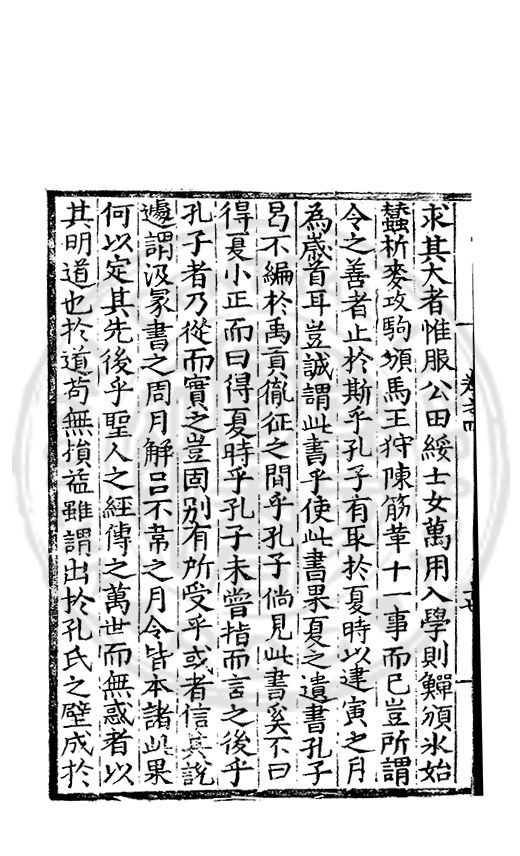 求其大者惟服公田綏士女萬用入學則鱓頒冰始
蠶析麥攻駒頒馬王狩陳筋革十一事而已豈所謂
令之善者止於斯乎孔子有取於夏時以建寅之月
為歲首耳豈誠謂此書乎使此書果夏之遺書孔子
曷不編於禹貢𦙍征之間乎孔子倘見此書奚不曰
得夏小正而曰得夏時乎孔子未嘗指而言之後乎
孔子者乃從而實之豈固別有所受乎或者信其說
遽謂汲冢書之周月解呂不韋之月令皆本諸此果
何以定其先後乎聖人之經傳之萬世而無惑者以
其明道也於道苟無損益雖謂出於孔氏之壁成於
卷之四